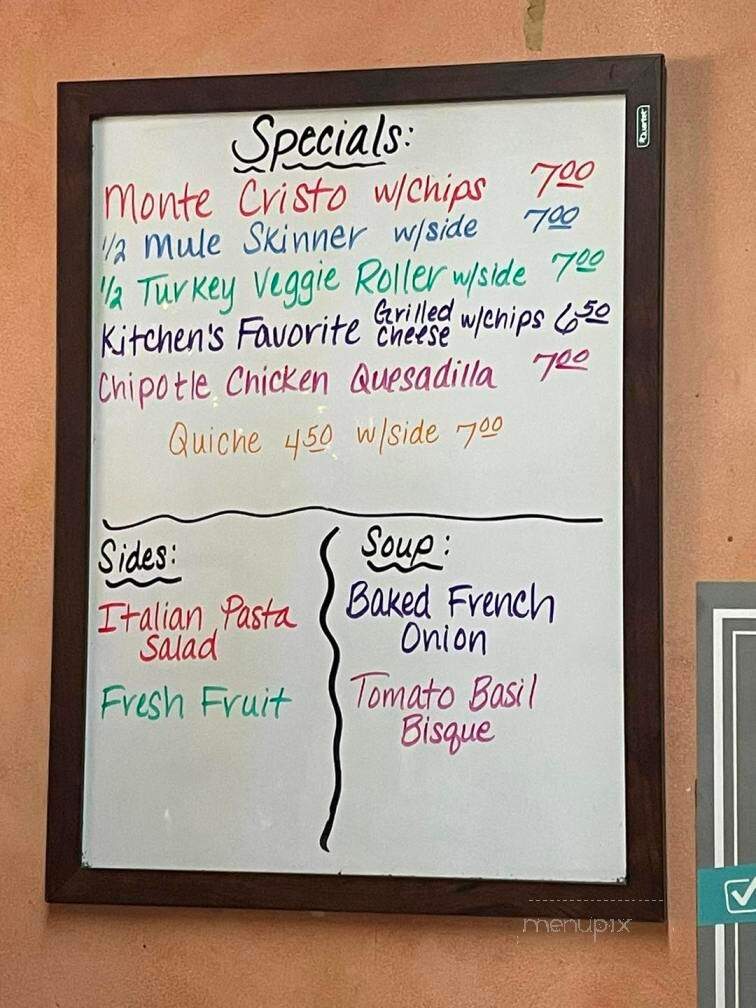 Specials:
Quartet
Monte Cristo w/chips 7.00
1/2 Mule Skinner w/side 7.00
1/2 Turkey Veggie Roller w/side 7.00
Kitchen's Favorite Grilled Cheese w/chips 6.50
Chipotle Chicken Quesadilla 7.00
Quiche 4.50 w/side 7.00
Sides:
Italian Pasta
Salad
Fresh Fruit
Soup:
Baked French
Onion
Tomato Basil
Bisque
menupix